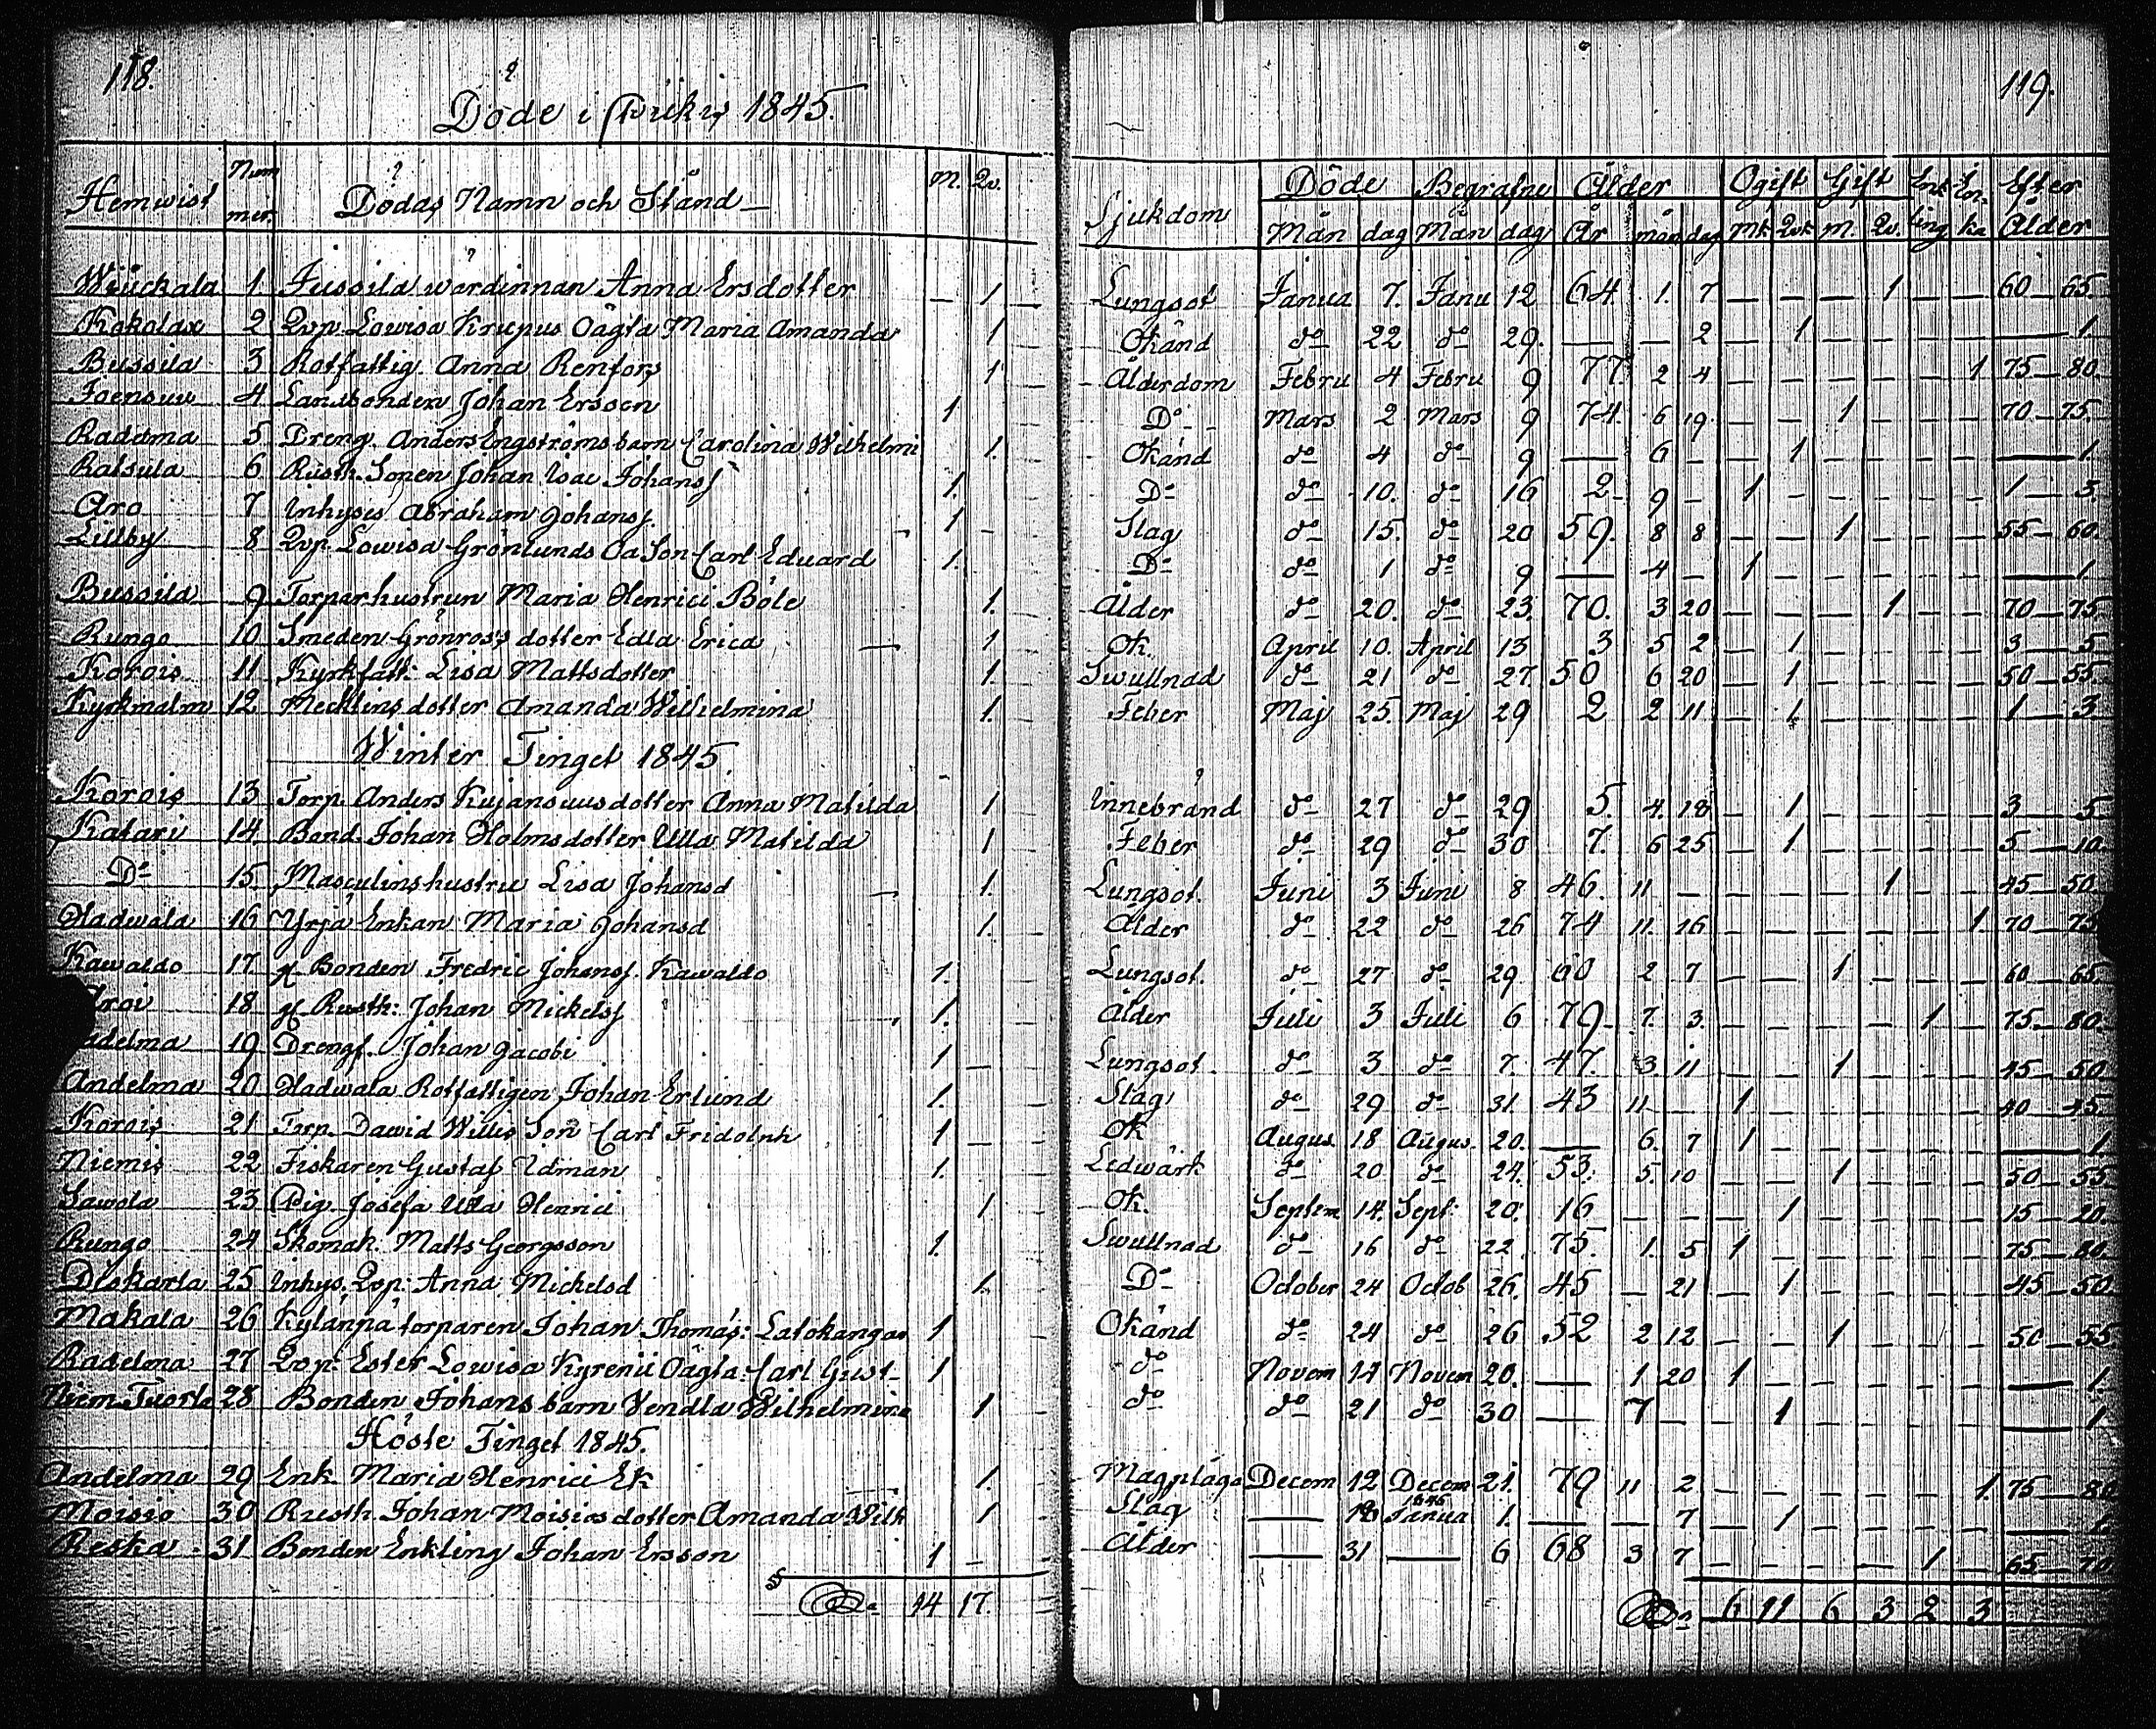 118.
Döde i Piikis 1845.
Hemwist Num mer. Dödas Namn och Stånd M. Qv.
Wiuckala 1. Jussila wärdinnan Anna Ersdotter — 1
Kokolax 2 Qvp. Lowisa Krupus Oägta Maria Amanda 1
Bussila 3 Rotfattig. Anna Renfors 1
Joensuu 4 Landbonden Johan Ersson 1
Radelma 5 Dreng. Anders Engströms barn Carolina Wilhelmi 1.
Raksula 6. Rusth. Sonen Johan Isac Johansf 1.
Aro 7 Inhyses Abraham Johansf. 1 -
Lillby 8 Qvp. Lowisa Grönlunds Oä Son Carl Eduard 1.
Bussila 9 Torparhustrun Maria Henrici Böle 1.
Rungo 10 Smeden Grönroos's dotter Edla Erica 1
Korois 11 Kyrkfatt: Lisa Mattsdotter 1.
Kyrkmalm 12 Mecklins dotter Amanda Wilhelmina 1.
Winter Tinget 1845
Korois 13 Torp. Anders Kujansuus dotter Anna Matilda 1
Katari 14. Bond. Johan Holms dotter Ulla Matilda 1
Do 15. Masculins hustru Lisa Johansd 1.
Hadwala 16 Yrjä Enkan Maria Johansd 1.
Kawaldo 17. gl. Bonden Fredric Johansf. Kawaldo 1.
18 gl. Rusth: Johan Mickelsf 1.
adelma 19 Drengf. Johan Jacobi 1 —
Andelma 20 Hadwala Rotfattigen Johan Erlund 1.
Korois 21 Torp. Dawid Willes Son Carl Fridolph 1 —
Niemis 22 Fiskaren Gustaf Idman 1.
Sawola 23 Pig. Josefa Ulla Henrici 1
Rungo 24 Skomak. Matts Georgsson 1.
Diskarla 25 Inhys. Qvp: Anna Michelsd 1.
Makala 26 Kylänpä torparen Johan Thomas: Latokangas 1
Radelma 27 Qvp: Ester Lowisa Kyrenii Oägta: Carl Gust- 1
Niem Tuorla 28 Bonden Johans barn Vendla Wilhelmina 1
Höste Tinget 1845.
Andelma 29 Enk. Maria Henrici Ek 1.
Moisio 30 Rusth. Johan Moisios dotter Amanda Wilh 1
Reska 31 Bonden Enkling Johan Ersson 1 -
14 17.
119.
Sjukdom Döde Begrafne Ålder Ogift Gift Enk ling En ka Efter Ålder
Mån dag Mån dag År mån dag Mk Qvk M. Qv.
Lungsot Janua 7. Janu 12 64. 1. 7 — — — 1 — — 60—65.
Okänd do 22 do 29. — — 2 — 1 — 1
Ålderdom Febru 4 Febru 9 77. 2 4 — — — — — 1 75—80.
Do Mars 2 Mars 9 74. 6 19. — — 1 — — — 70—75.
Okänd do 4 do 9 — 6 — — 1 — — — — — 1
Do do 10. do 16 2 9 — 1 — — — — — 1—3.
Slag do 15. do 20 59. 8 8 — — 1 — — — 55—60.
Do do 1 do 9 — 4 — 1 — — — — — — 1
Ålder do 20. do 23. 70. 3 20 — — — 1 — — 70—75.
Ok. April 10. April 13 3 5 2 — 1 — — — — 3—5
Swullnad do 21 do 27. 50 6 20 — 1 — — — — 50—55
Feber Maj 25. Maj 29 2 2 11 — 1 — — — — 1—3
Innebränd do 27 do 29 5. 4. 18 — 1 — — — — 3—5
Feber do 29 do 30 7. 6 25 — 1 — — — — 5—10.
Lungsot. Juni 3 Juni 8 46. 11 — — — — 1 — — 45—50
Ålder do 22 do 26 74 11. 16 — — — — — 1 70—75
Lungsot. do 27 do 29. 60 2 7 — — 1 — — — 60—65.
Ålder Juli 3 Juli 6 79 7. 3. — — — — 1 — 75—80.
Lungsot. do 3 do 7. 47. 3 11 — — 1 — — — 45—50
Slag do 29 do 31 43 11 — 1 — — — — — 40—45
Ok Augus. 18 Augus. 20. — 6. 7 1 — — — — — — 1
Ledwärk do 20 do 24. 53. 5. 10 — — 1 — — — 50—55
Ok. Septem 14. Sept: 20. 16 — — — 1 — — — — 15—20.
Swullnad do 16 do 22. 75. 1. 5 1 — — — — — 75—80
Do October 24 Octob 26. 45 — 21 — 1 — — — — 45—50.
Okänd do 24 do 26 52 2 12 — — 1 — — — 50—55
do Novem 14 Novem 20. — 1 20 1 — — — — — — 1.
do do 21 do 30 — 7 — — 1 — — — — — 1
Magplåga Decem 12 Decem 21. 79 11 2 — — — — — 1. 75—80
Slag — 18 1846 Janua 1. — — 7 — 1 — — — — — 1.
Ålder — 31 — 6 68 3 7 — — — — 1 — 65—70
6 11 6 3 2 3